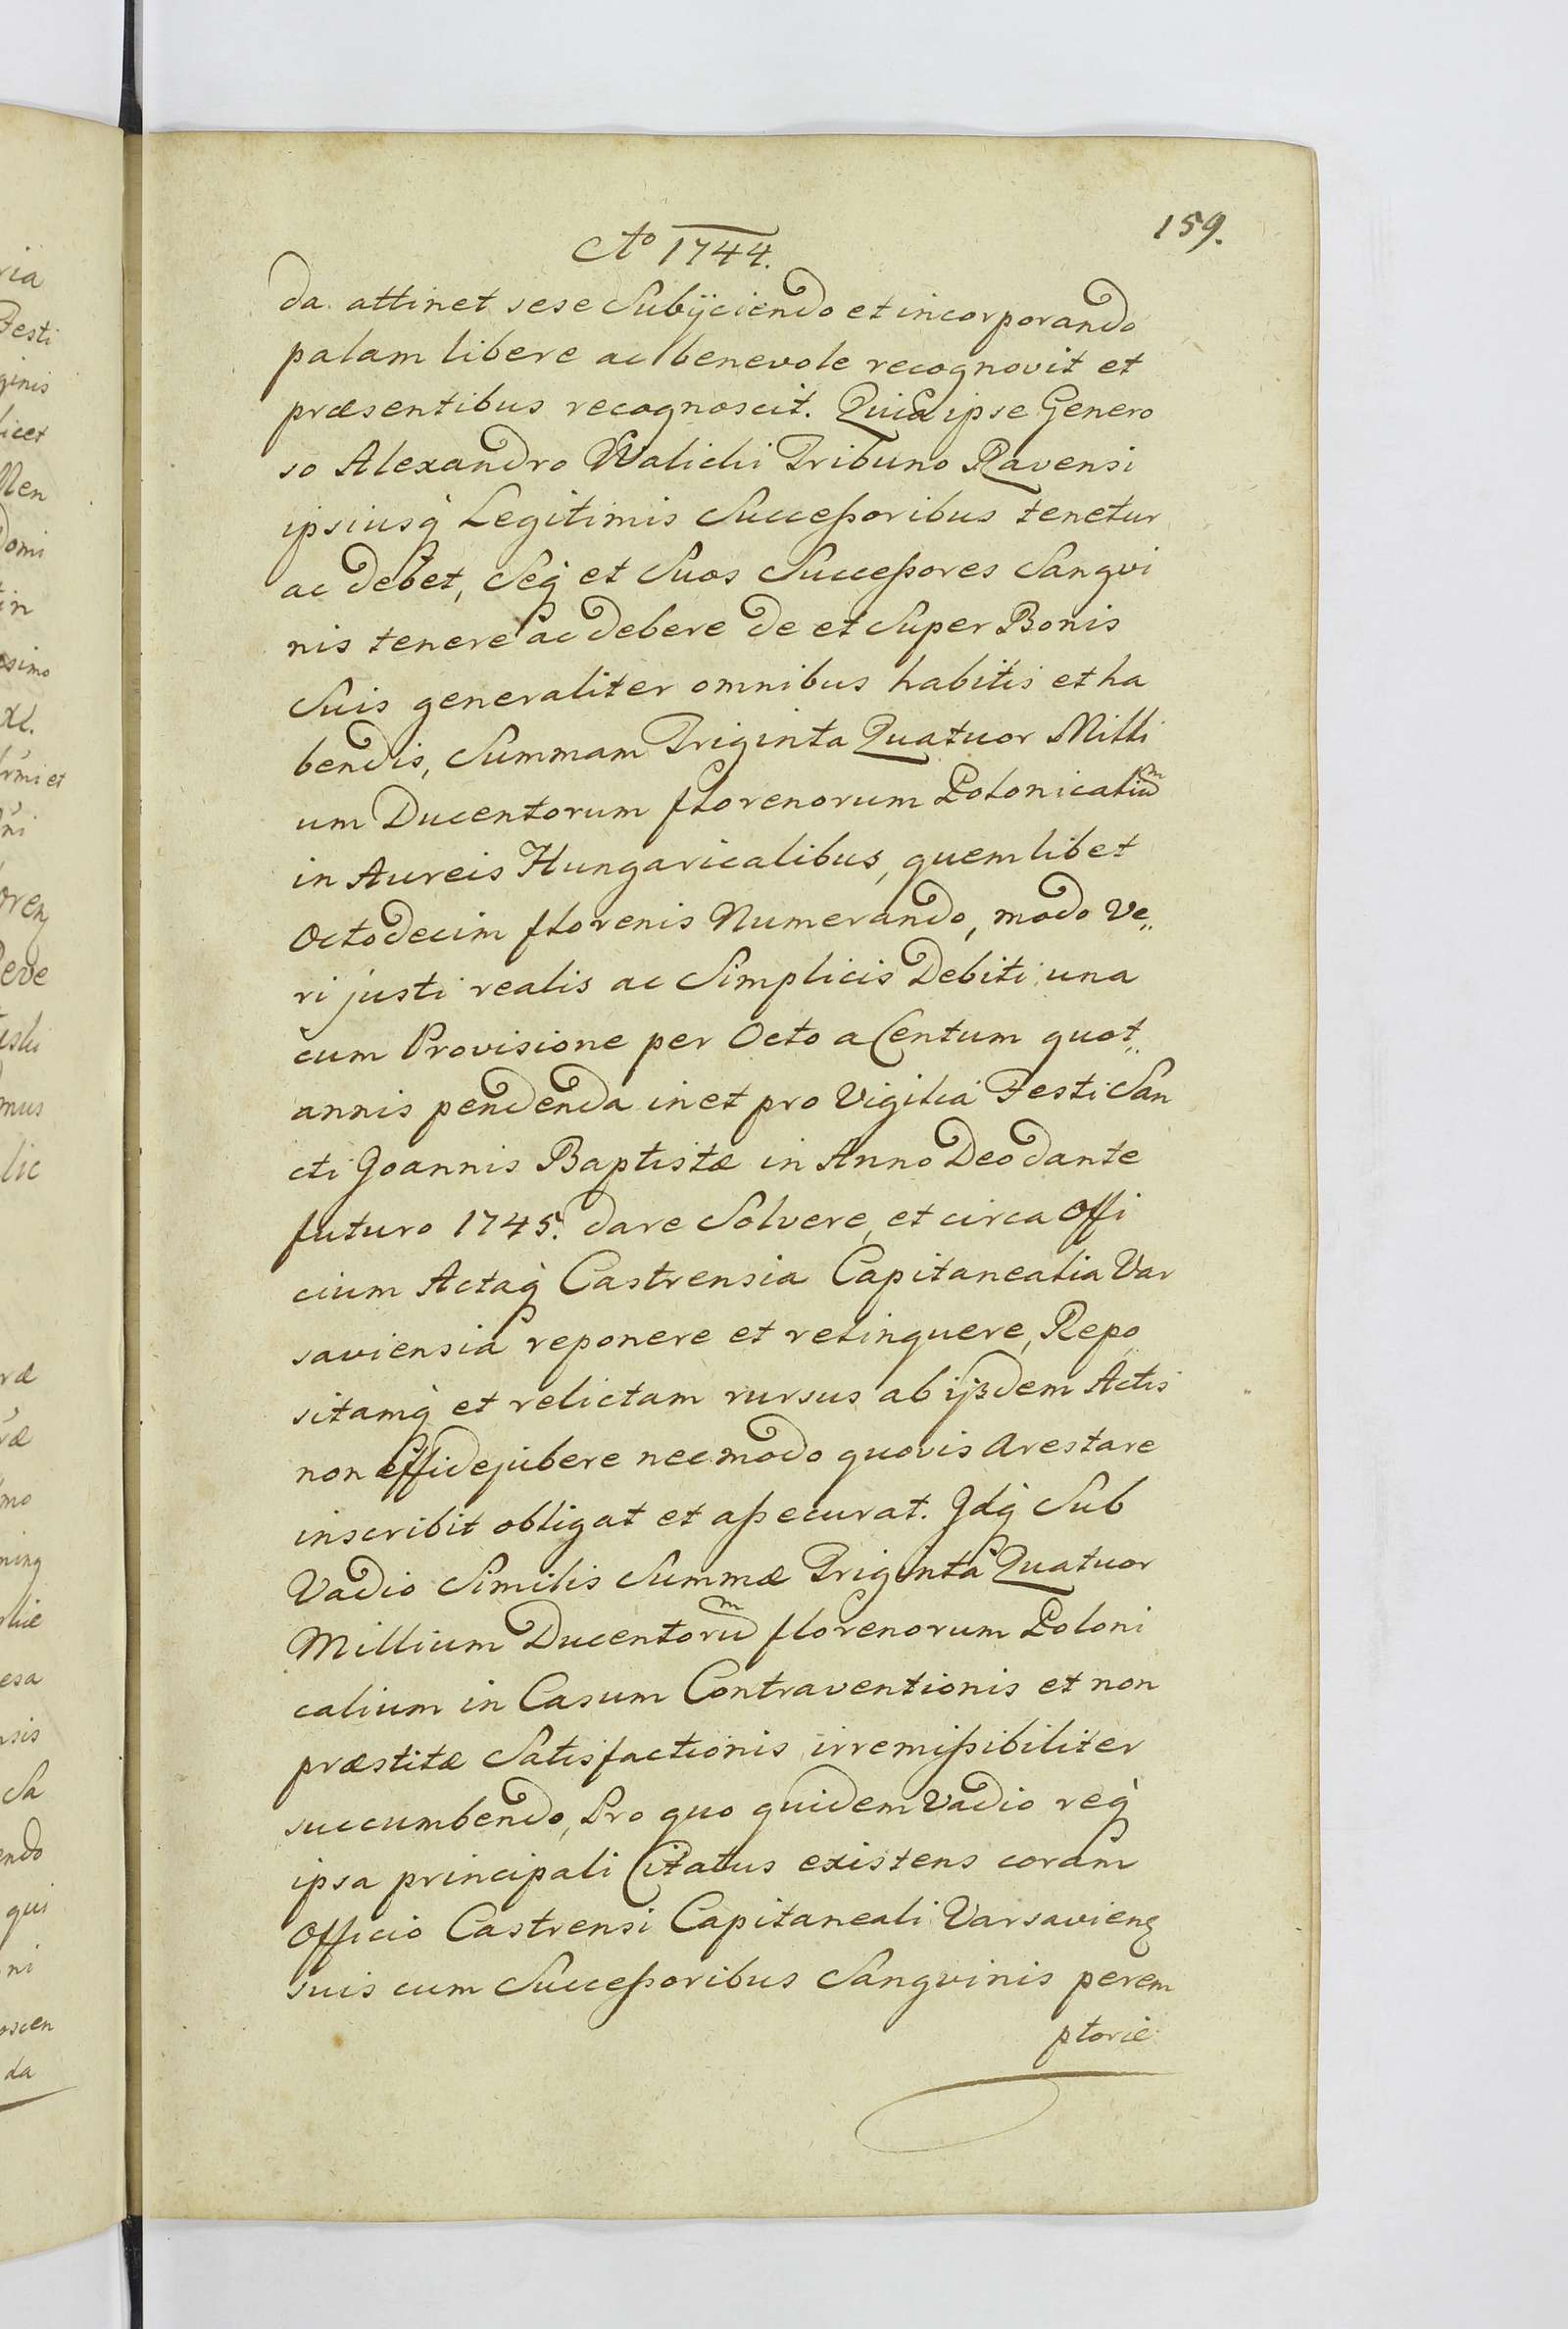 159.
Ao 1744.
da attinet sese Subijciendo et incorporando
palam libere ac benevole recognovit et
præsentibus recognoscit. Quia ipse Genero
so Alexandro Walicki Tribuno Ravensi
ipsiusq̀ Legitimis Succeßoribus tenetur
ac debet, Seq̀ et Suos Succeßores Sangvi
nis tenere ac debere de et Super Bonis
Suis generaliter omnibus habitis et ha
bendis, Summam Triginta Quatuor Milli
um Ducentorum florenorum Polonicalium
in Aureis Hungaricalibus, quemlibet
Octodecim florenis Numerando, modo Ve„
ri justi realis ac Simplicis Debiti una
cum Provisione per Octo a Centum quot„
annis pendenda in et pro Vigilia Festi San
cti Joannis Baptistæ in Anno Deo dante
futuro 1745. dare Solvere, et circa Offi
cium Actaq̀ Castrensia Capitanealia Var
saviensia reponere et relinquere, Repo
sitamq̀ et relictam rursus ab ijsdem Actis
non effidejubere nec modo quovis Arestare
inscribit obligat et aßecurat. Idq̀ Sub
Vadio Similis Summæ Triginta Quatuor
Millium Ducentorum florenorum Poloni
calium in Casum Contraventionis et non
præstitæ Satisfactionis irremißibiliter
succumbendo, Pro quo quidem Vadio req̀
ipsa principali Citatus existens coram
Officio Castrensi Capitaneali Varsavien
suis cum Succeßoribus Sangvinis perem
ptorie